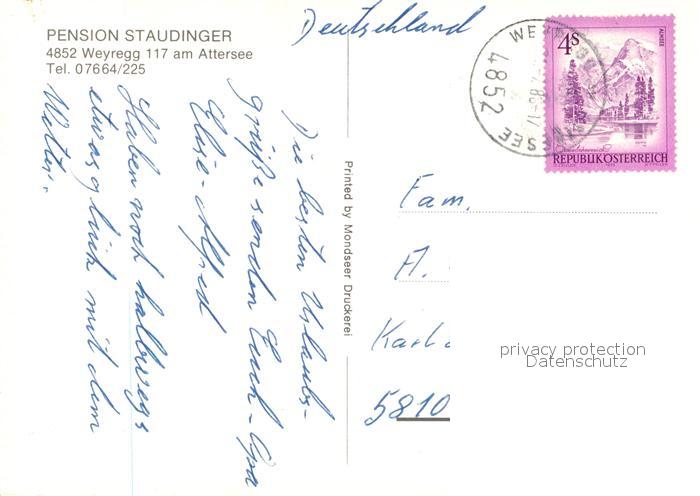 PENSION STAUDINGER
4852 Weyregg 117 am Attersee
Tel. 07664/225
Deutschland
Die besten Urlaubs-
grüße senden Euch - Opa
Elise - Alfred
Haben noch halbwegs
etwas glück mit dem
Wetter.
Printed by Mondseer Druckerei
4852
4S
ALMSEE
REPUBLIK ÖSTERREICH
Fam.
A.
Karl
5810
privacy protection
Datenschutz